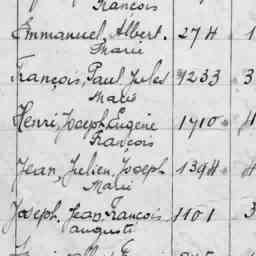 François
Emmanuel, Albert. 274 1
Marie
François, Paul, Jules 1233 3
Marie
Henri, Joseph, Eugène 1710 4
François
Jean, Julien, Joseph 1394 4
Marie
Joseph, Jean, François 1101 3
auguste